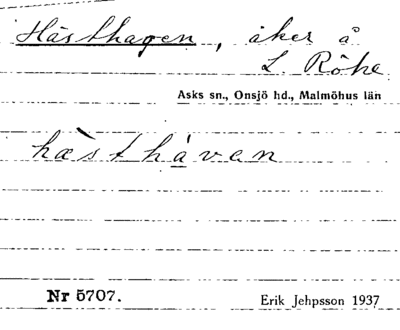 Hästhagen, åker å
L. Röke
Asks sn., Onsjö hd., Malmöhus län
hæsthåven
Nr 5707.
Erik Jehpsson 1937